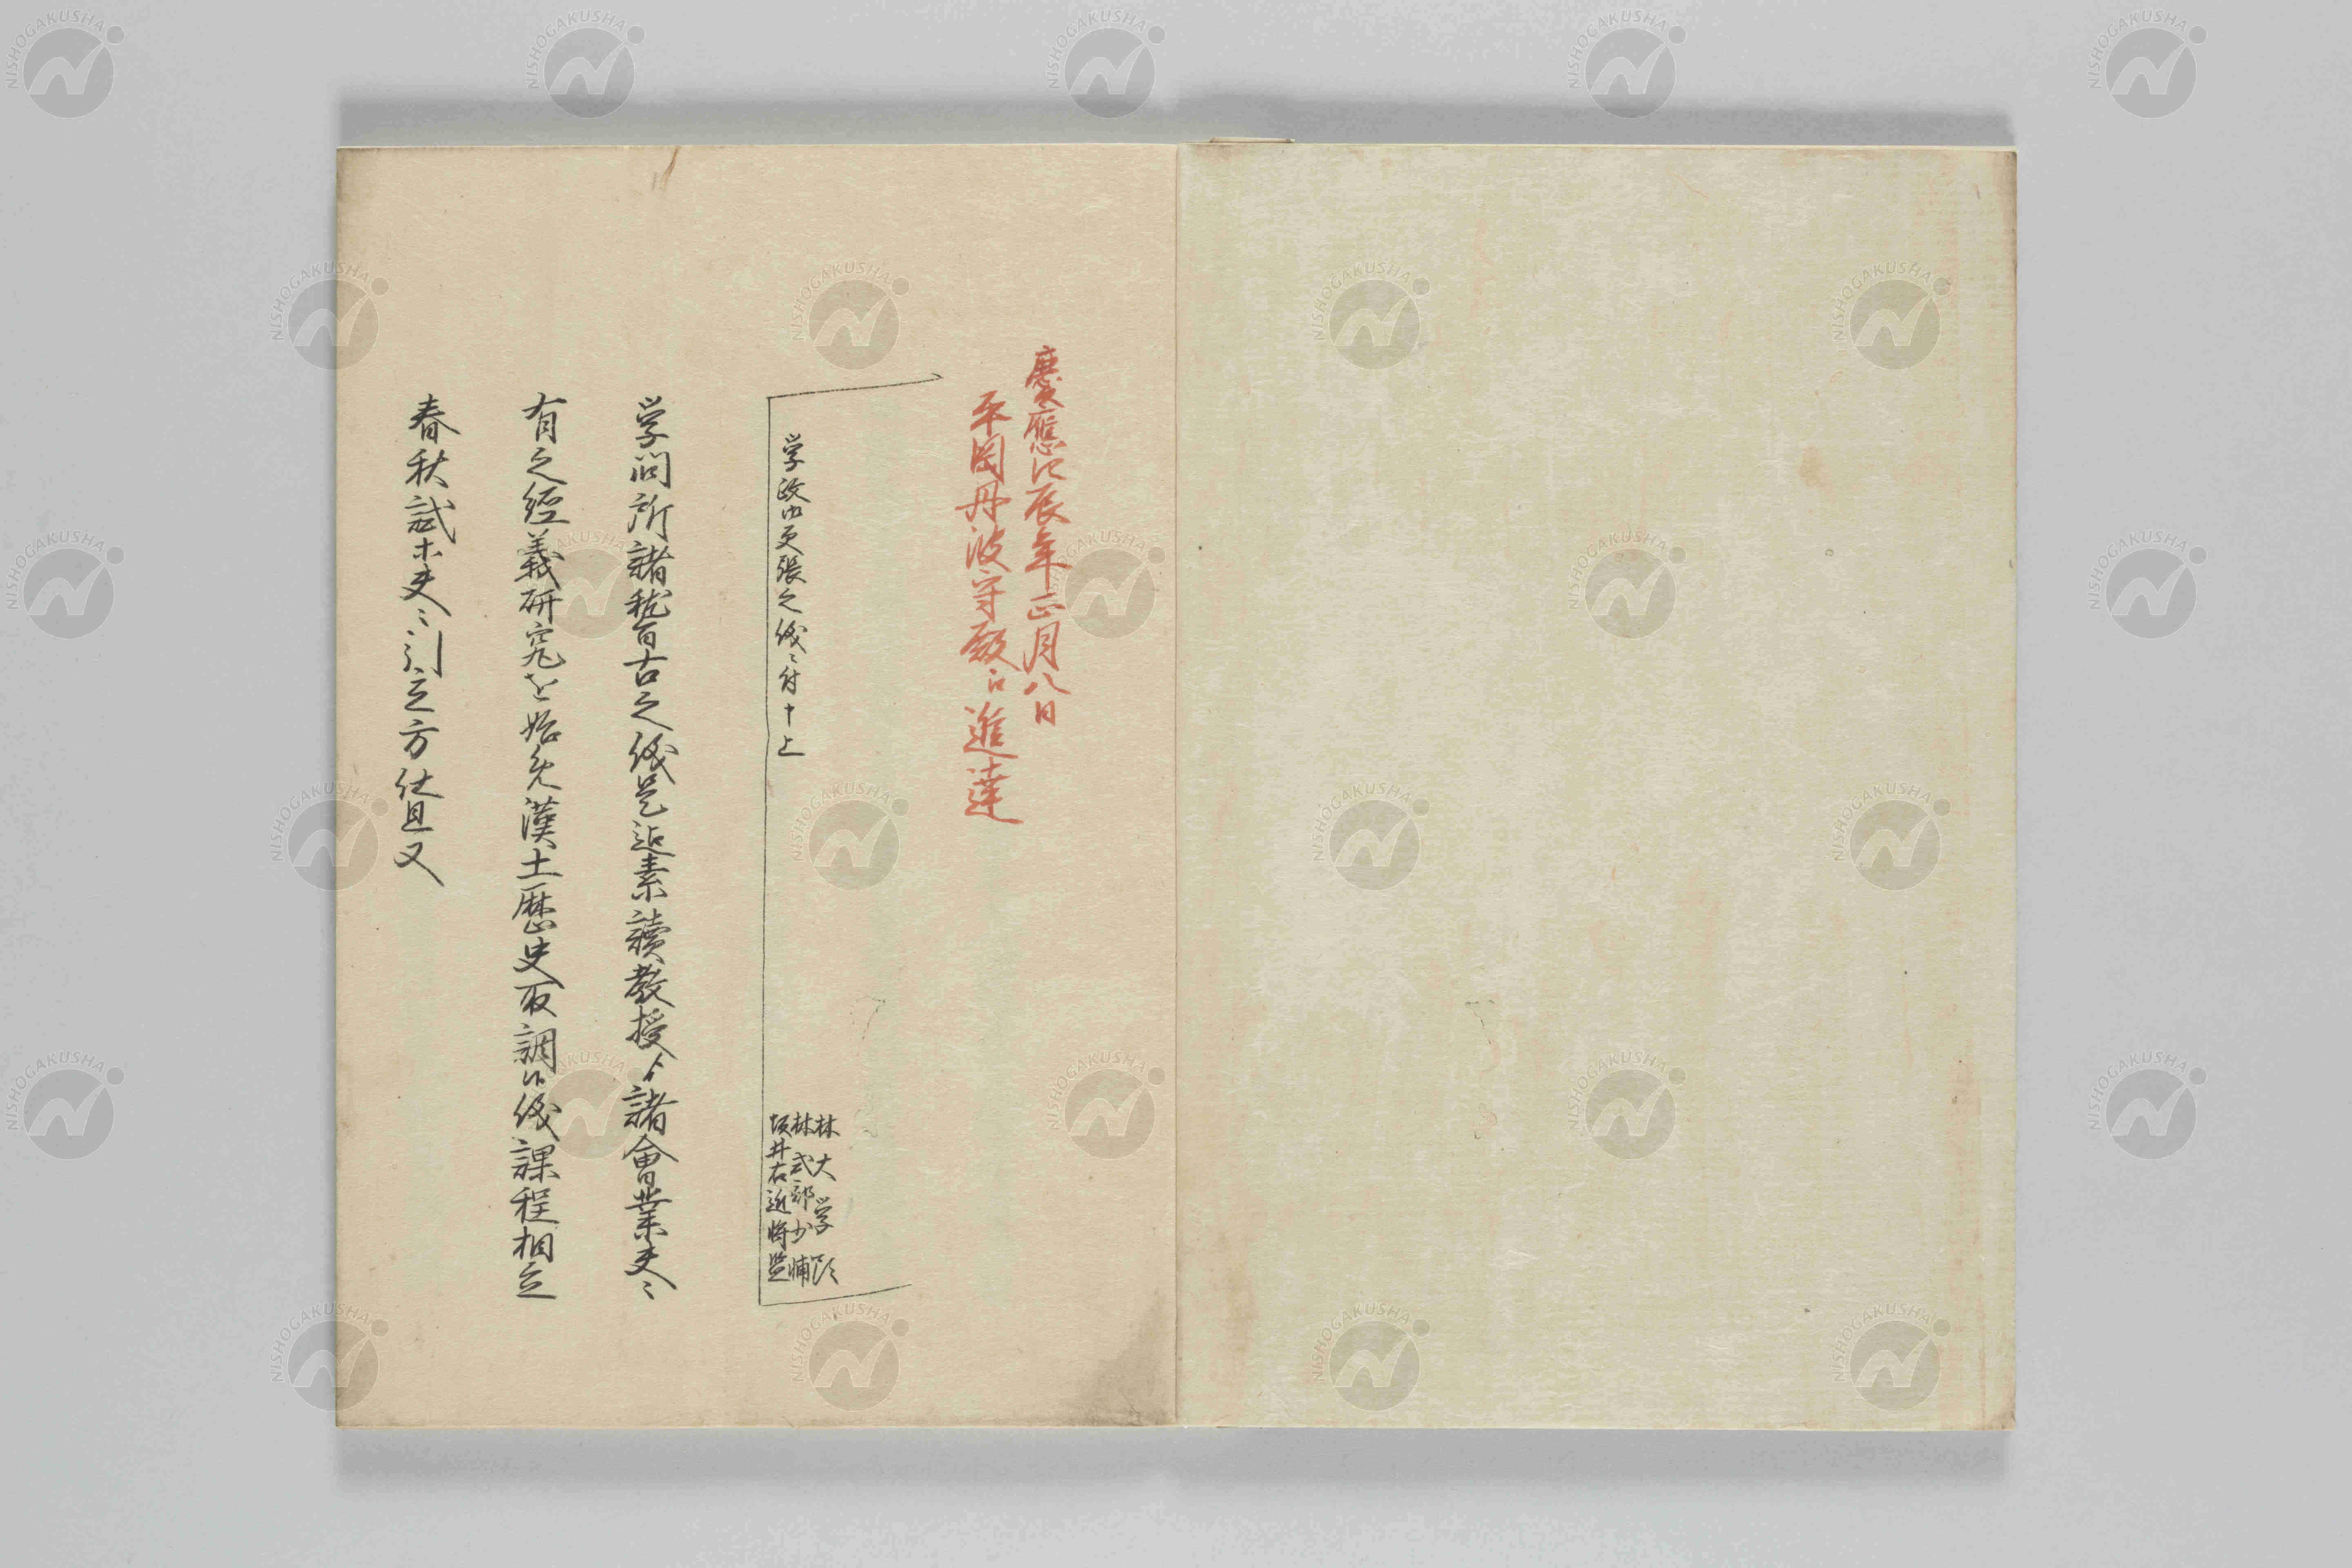 慶應四辰年正月八日
平岡丹波守殿江進達
学政御更張之儀ニ付申上
林大学頭
林式部少輔
坂井右近将監
学問所諸稽古之儀是迄素讀教授ゟ諸會業夫々
有之經義研究を始免漢土歴史取調候儀課程相立
春秋試業夫々引立方仕且又